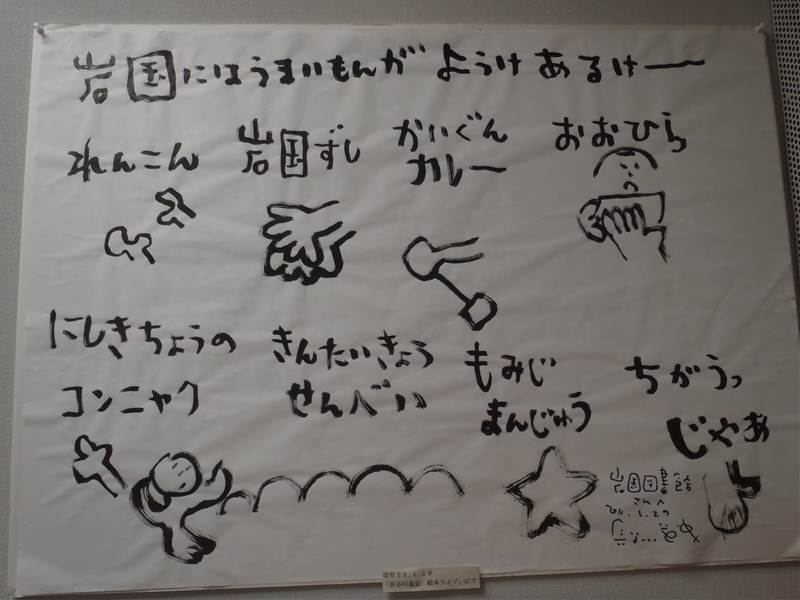 岩国にはうまいもんが ようけ あるけー
れんこん
岩国ずし
かいぐん
カレー
おおひら
にしきちょうの
コンニャク
きんたいきょう
せんべい
もみじ
まんじゅう
ちがうっ
じゃあ
岩国図書館
さんへ
2011.1.29
2011.1.29
「長谷川義史 絵本ライブ」にて